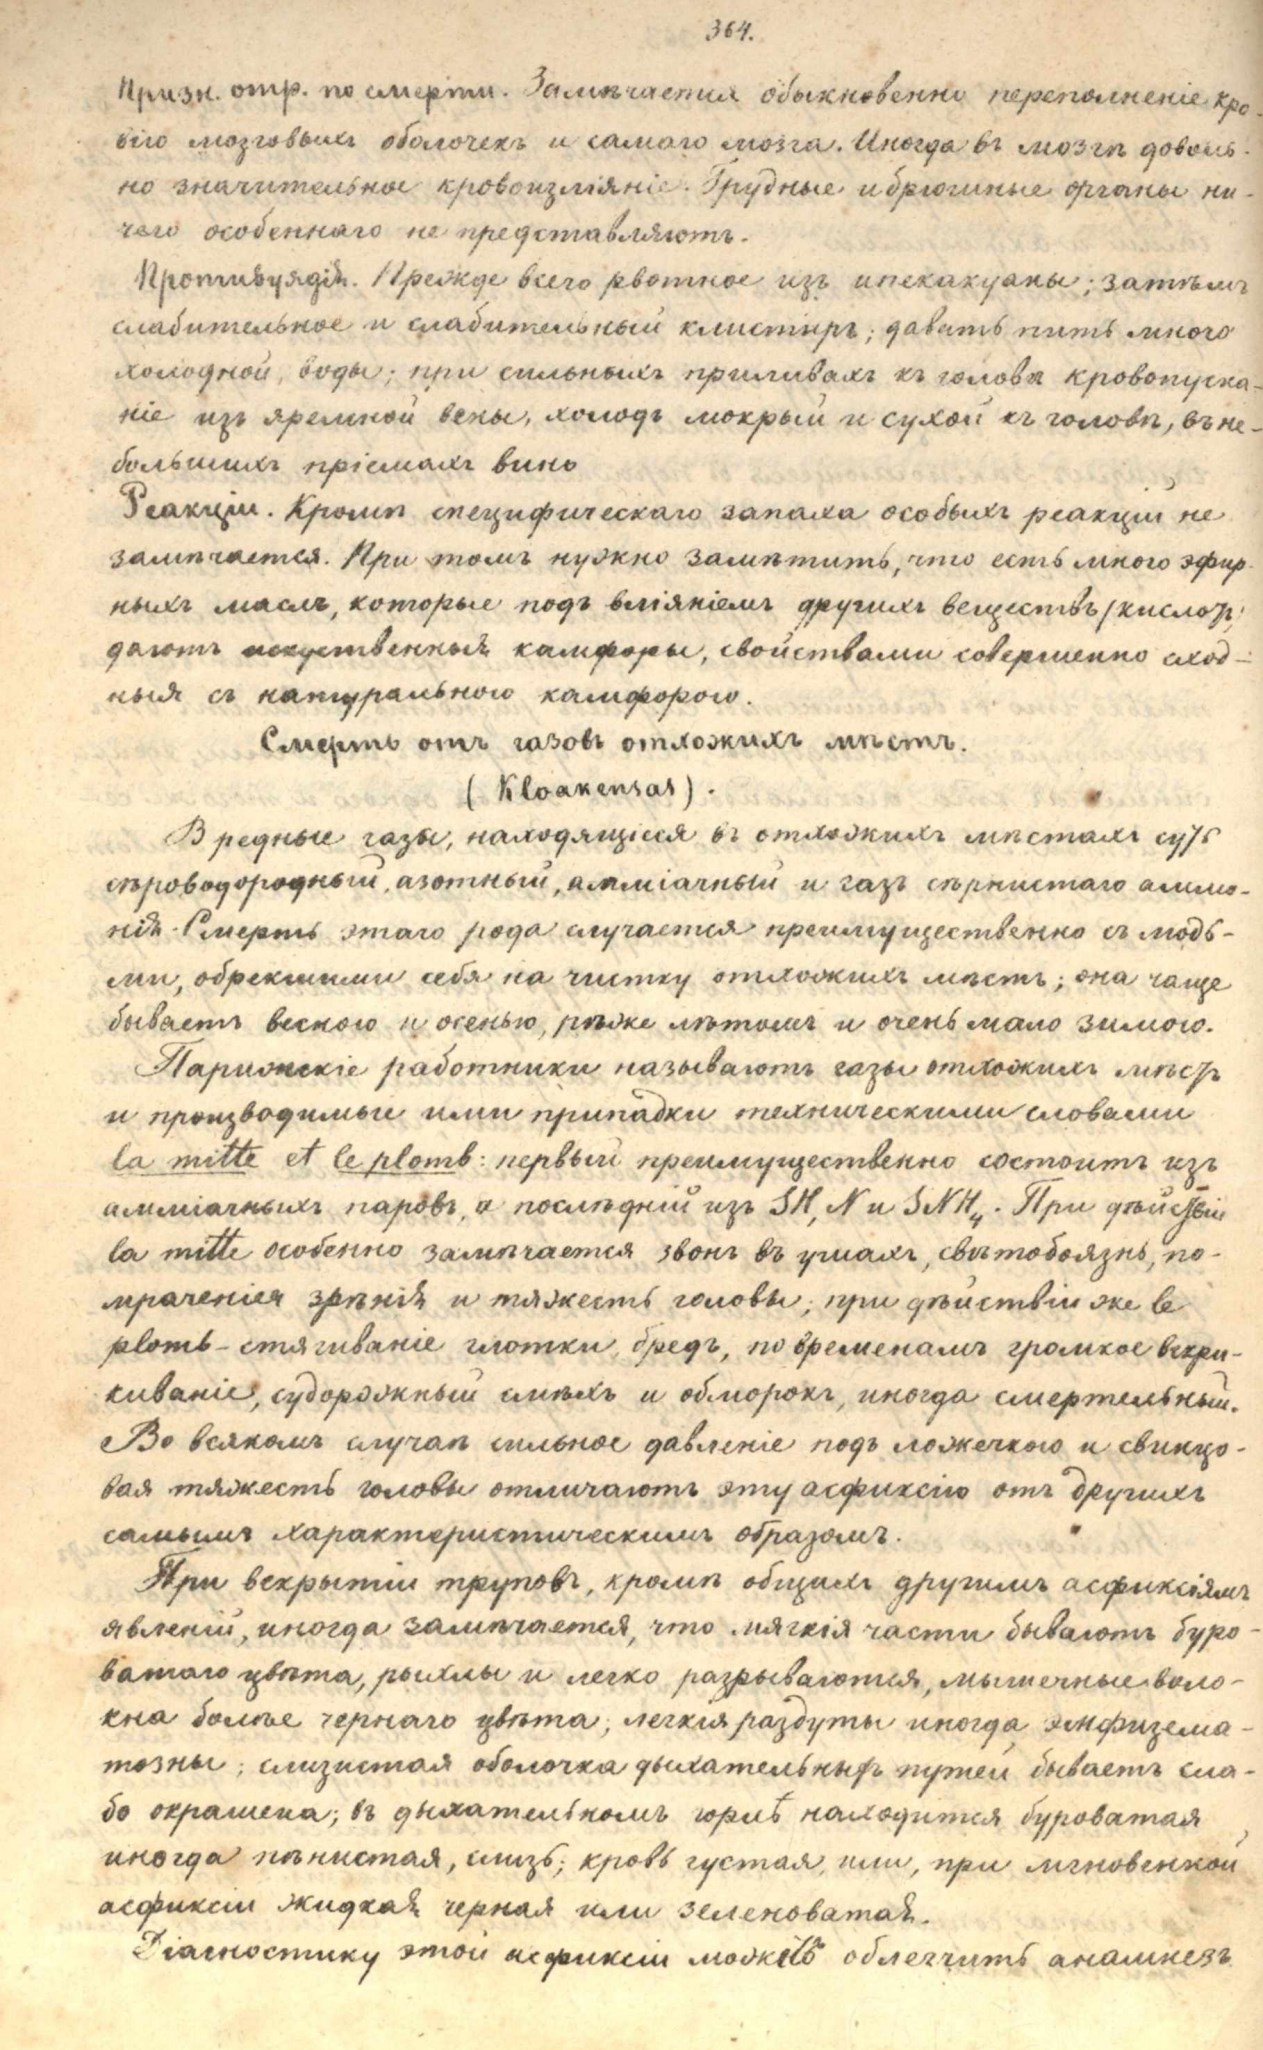 364.
Призн. отр. по смерти. Замѣчается обыкновенно переполненіе кро-
вію мозговыхъ оболочекъ и самаго мозга. Иногда въ мозгѣ доволь-
но значительное кровоизліяніе. Грудные и брюшные органы ни-
чего особеннаго не представляютъ.
Противуядія. Прежде всего рвотное изъ ипекакуаны; затѣмъ
слабительное и слабительный клистиръ; давать пить много
холодной воды; при сильныхъ приливахъ къ головѣ кровопуска-
ніе изъ яремной вены, холодъ мокрый и сухой къ головѣ, въ не-
большихъ пріемахъ вино
Реакціи. Кромѣ специфическаго запаха особыхъ реакцій не
замѣчается. При томъ нужно замѣтить, что есть много эфир-
ныхъ маслъ, которые подъ вліяніемъ другихъ веществъ (кислотъ)
даютъ искуственныя камфоры, свойствами совершенно сход-
ныя съ натуральною камфорою.
Смерть отъ газовъ отхожихъ мѣстъ.
(Kloakensas).
Вредные газы, находящіеся въ отхожихъ мѣстахъ суть
сѣроводородный, азотный, амміачный и газъ сѣрнистаго аммо-
нія. Смерть этаго рода случается преимущественно съ людь-
ми, обрекшими себя на чистку отхожихъ мѣстъ; она чаще
бываетъ весною и осенью, рѣже лѣтомъ и очень мало зимою.
Парижскіе работники называютъ газы отхожихъ мѣстъ
и производимые ими припадки техническими словами
la mitte et le plomb: первый преимущественно состоитъ изъ
амміачныхъ паровъ, а послѣдній изъ SH, N и SNH₄. При дѣйствіи
la mitte особенно замѣчается звонъ въ ушахъ, свѣтобоязнь, по-
мраченіея зрѣнія и тяжесть головы; при дѣйствіи же le
plomb - стягиваніе глотки, бредъ, по временамъ громкое вскри-
киваніе, судорожный смѣхъ и обморокъ, иногда смертельный.
Во всякомъ случаѣ сильное давленіе подъ ложечкою и свинцо-
вая тяжесть головы отличаютъ эту асфиксію отъ другихъ
самымъ характеристическимъ образомъ.
При вскрытіи труповъ, кромѣ общихъ другимъ асфиксіямъ
явленій, иногда замѣчается, что мягкія части бываютъ буро-
ватаго цвѣта, рыхлы и легко разрываются, мышечные воло-
кна болѣе чернаго цвѣта; легкія раздуты иногда эмфизема-
тозны; слизистая оболочка дыхательныхъ путей бываетъ сла-
бо окрашена; въ дыхательномъ горлѣ находится буроватая
иногда пѣнистая, слизь; кровь густая, или, при мгновенной
асфиксіи жидкая черная или зеленоватая.
Діагностику этой асфиксіи можетъ облегчить анамнезъ